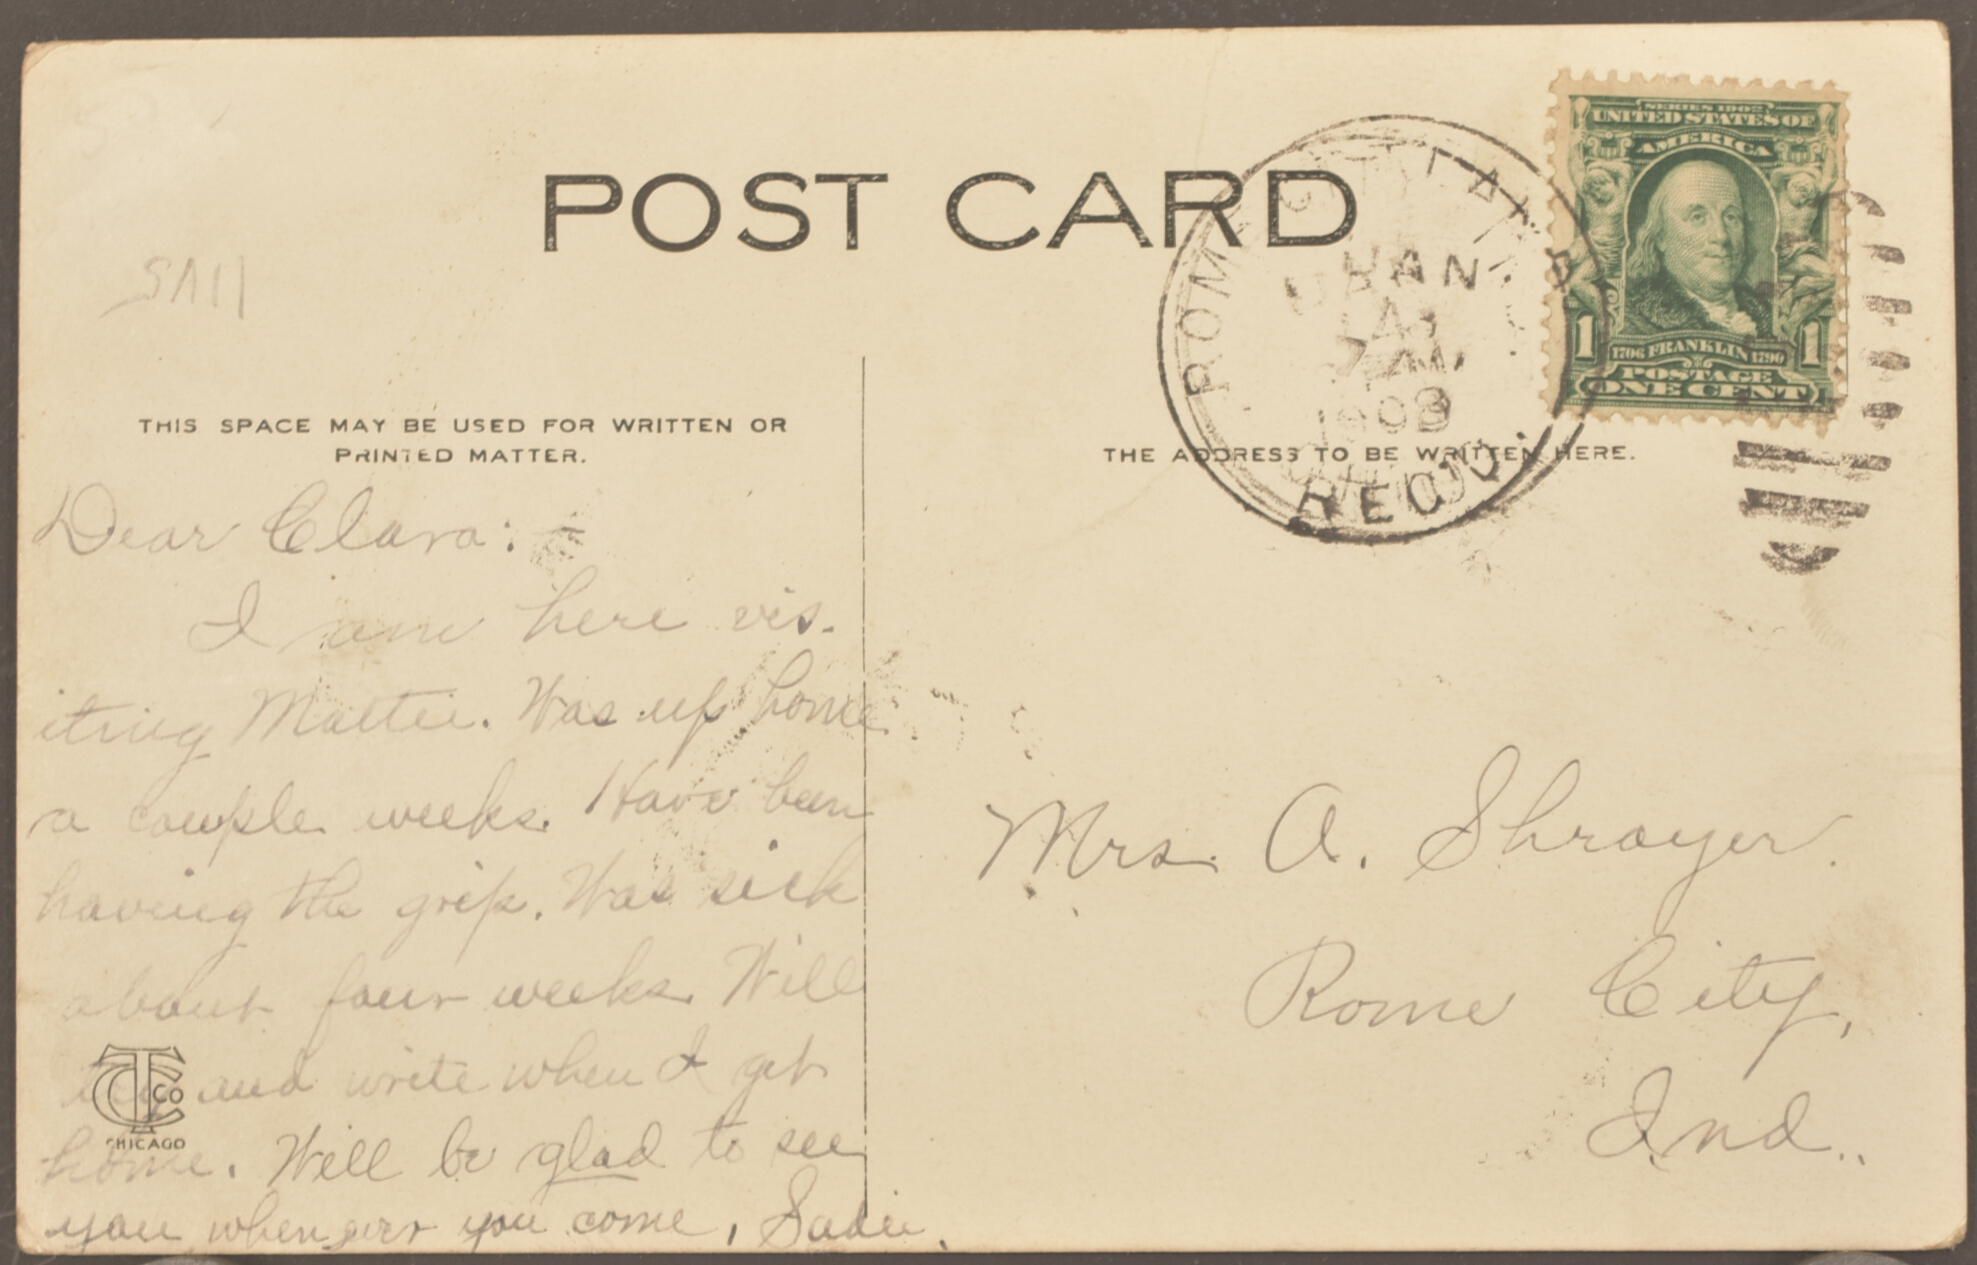 POST CARD
SERIES 1902
UNITED STATES OF
AMERICA
1706 FRANKLIN 1790
1 1
POSTAGE
ONE CENT
ROME CITY
JAN
7 AM
190
REC'D.
THIS SPACE MAY BE USED FOR WRITTEN OR
PRINTED MATTER.
THE ADDRESS TO BE WRITTEN HERE.
Dear Clara:
I am here vis-
iting Mattie. Was up home
a couple weeks. Have been
having the grip. Was sick
about four weeks. Will
try and write when I get
home. Will be glad to see
you whenever you come, Sadie.
TCCO
CHICAGO
Mrs. A. Shroyer.
Rome City,
Ind..